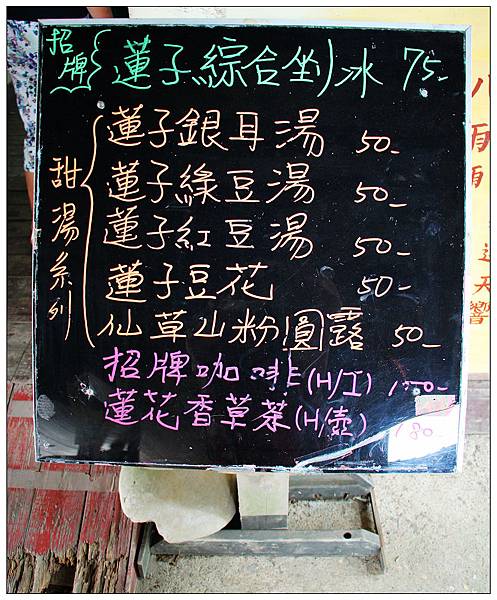 招牌 蓮子綜合剉冰 75-
甜湯系列
蓮子銀耳湯 50-
蓮子綠豆湯 50-
蓮子紅豆湯 50-
蓮子豆花 50-
仙草山粉圓露 50-
招牌咖啡(H/I) 100-
蓮花香草茶(H/壺) 180-